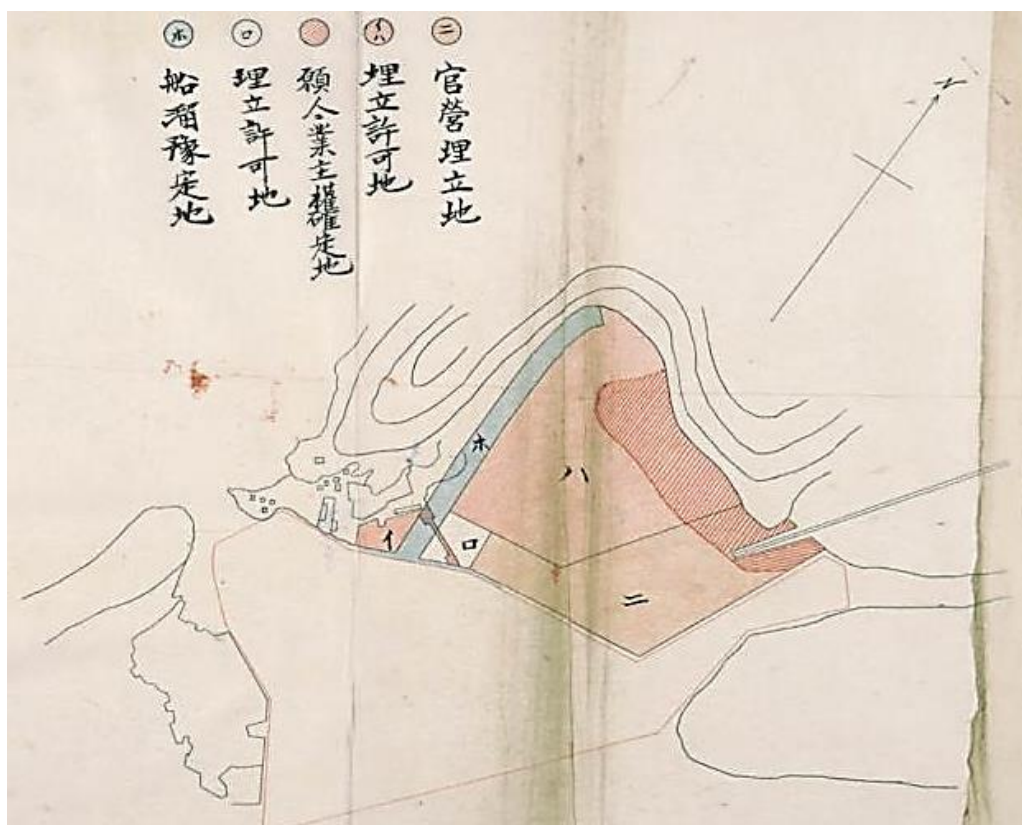 ニ 官營埋立地
イハ 埋立許可地
願人業主權確定地
ロ 埋立許可地
ホ 船溜豫定地
N
ホ
ハ
イ
ロ
ニ